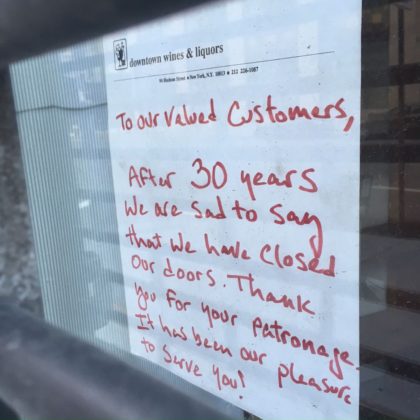 downtown wines & liquors
To our Valued Customers,
After 30 years
We are sad to say
that we have Closed
Our doors. Thank
you for your patronage.
It has been our pleasure
to serve you!